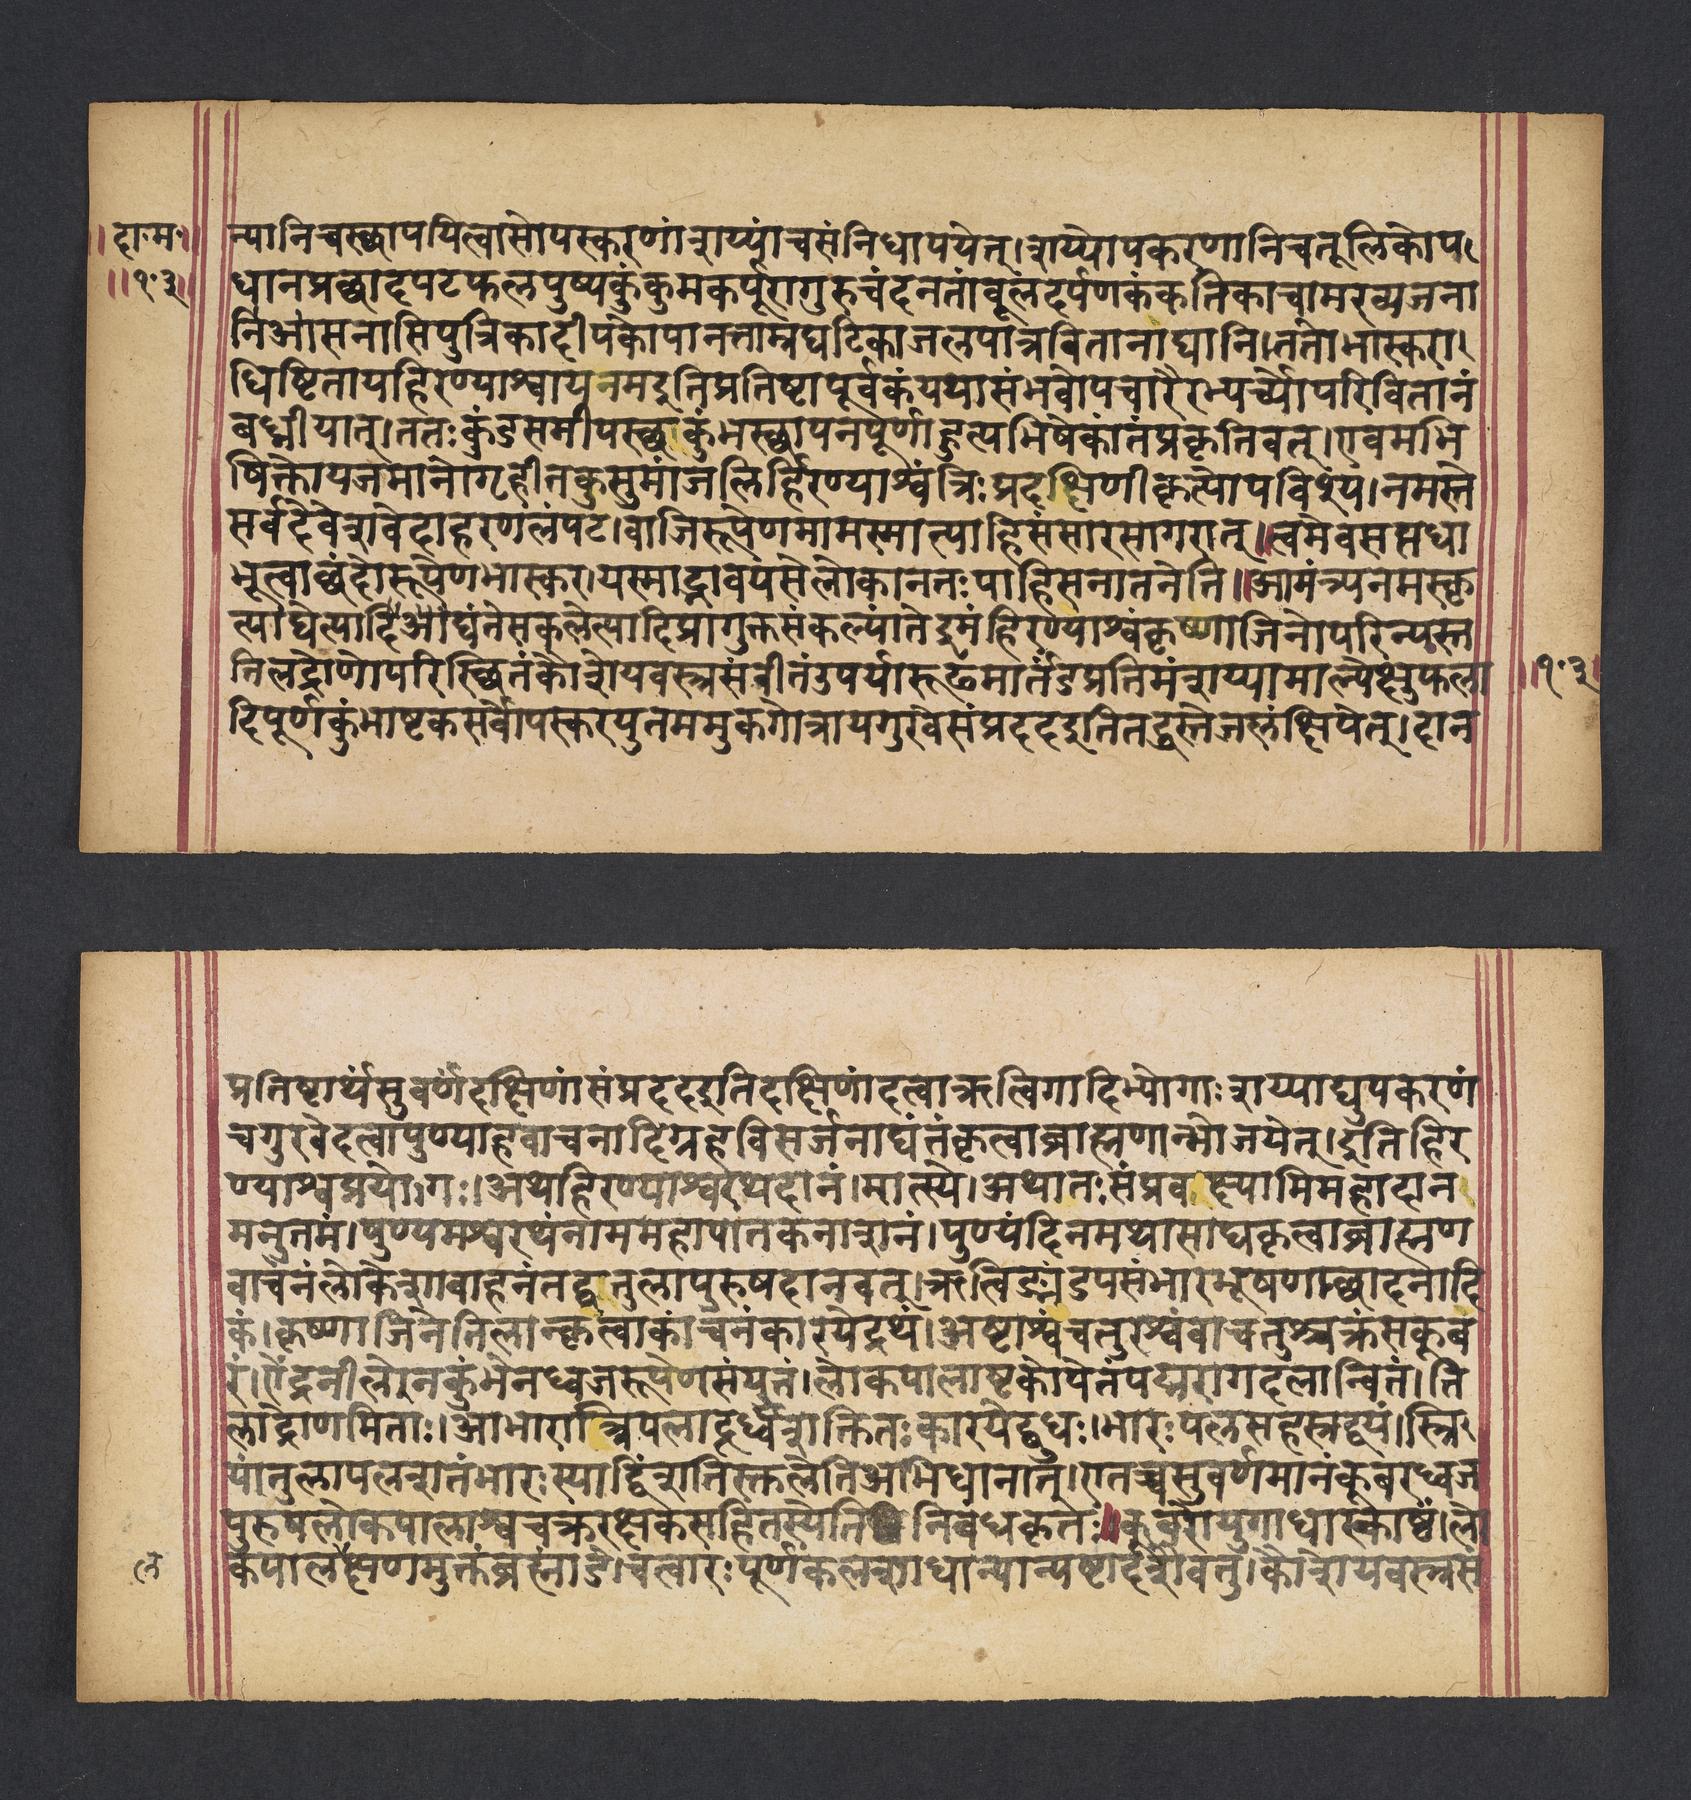 ।दा॰म॰॥
॥१॰३॥
न्यानिचस्थापयित्वासोपस्करणांशय्यांचसंनिधापयेत्।शय्योपकरणानिचतूलिकोप
धानप्रछादपटफलपुष्पकुंकुमकर्पूरागुरुचंदनतांबूलदर्पणकंकतिकाचामरव्यजना
निआसनासिपुत्रिकादीपकोपानत्ताम्रघटिकाजलपात्रवितानाद्यानि।ततोभास्करा
धिष्टितायहिरण्याश्वायनमइतिप्रतिष्टापूर्वकंयथासंभवोपचारैरभ्यर्च्योपरिवितानं
बध्नीयात्।ततःकुंडसमीपस्थकुंभस्थापनपूर्णाहुत्यभिषेकांतंप्रकृतिवत्।एवमभि
षिक्तोयजमानोगृहीतकुसुमांजलिर्हिरण्याश्वंत्रिःप्रदक्षिणीकृत्योपविश्य।नमस्ते
सर्वदेवेशवेदाहरणलंपट।वाजिरूपेणमामस्मात्पाहिसंसारसागरात्॥त्वमेवसप्तधा
भूत्वाछंदोरूपेणभास्कर।यस्माद्भावयसेलोकानतःपाहिसनातनेति॥आमंत्र्यनमस्कृ
त्याघेत्यादिआद्यंतेसकुलेत्यादिप्रागुक्तसंकल्पांतेइमंहिरण्याश्वंकृष्णाजिनोपरिन्यस्त
तिलद्रोणोपरिस्थितंकौशेयवस्त्रसंवीतंउपर्यारूढमार्तंडप्रतिमंशय्यामाल्येक्षुफला
॥१॰३॥
दिपूर्णकुंभाष्टकसर्वोपस्करयुतममुकगोत्रायगुरवेसंप्रददइतितद्धस्तेजलंक्षिपेत्।दान
प्रतिष्टार्थंसुवर्णंदक्षिणांसंप्रददइतिदक्षिणांदत्वाऋत्विगादिभ्योगाःशय्याद्युपकरणं
चगुरवेदत्वापुण्याहवाचनादिग्रहविसर्जनाद्यंतंकृत्वाब्राह्मणान्भोजयेत्।इतिहिर
ण्याश्वप्रयोगः।अथहिरण्याश्वरथदानं।मात्स्ये।अथातःसंप्रवक्ष्यामिमहादान
मनुतमं।पुण्यमश्वरथंनाममहापातकनाशनं।पुण्यंदिनमथासाद्यकृत्वाब्राह्मण
वाचनंलोकेशावाहनंतद्वतुलापुरुषदानवत्।ऋत्विङ्मंडपसंभारभूषणाछादनादि
कं।कृष्णाजिनेतिलान्कृत्वाकांचनंकारयेद्रथं।अष्टाश्वंचतुरश्वंवाचतुश्चक्रंसकूब
रं।ऐंद्रनीलेनकुंभेनध्वजरूपेणसंयुतं।लोकपालाष्टकोपेतंपद्मरागदलान्वितं।ति
लाद्रोणमिताः।आभारात्त्रिपलादूर्ध्वंशक्तितःकारयेद्बुधः।भारःपलसहस्रद्वयं।स्त्रि
यांतुलापलशतंभारःस्याद्विंशतिस्तुलेतिअभिधानात्।एतच्चसुवर्णमानंकूबरध्वज
पुरुषलोकपालाश्वचक्ररक्षकसहितस्येतिनिबंधकृतः॥कूबरोयुगाधारकाष्ठं।लो
कपालक्षणमुक्तंब्रह्मांडे।चत्वारःपूर्णकलशाधान्यान्यष्टादशैवतु।कौशेयवस्त्रस